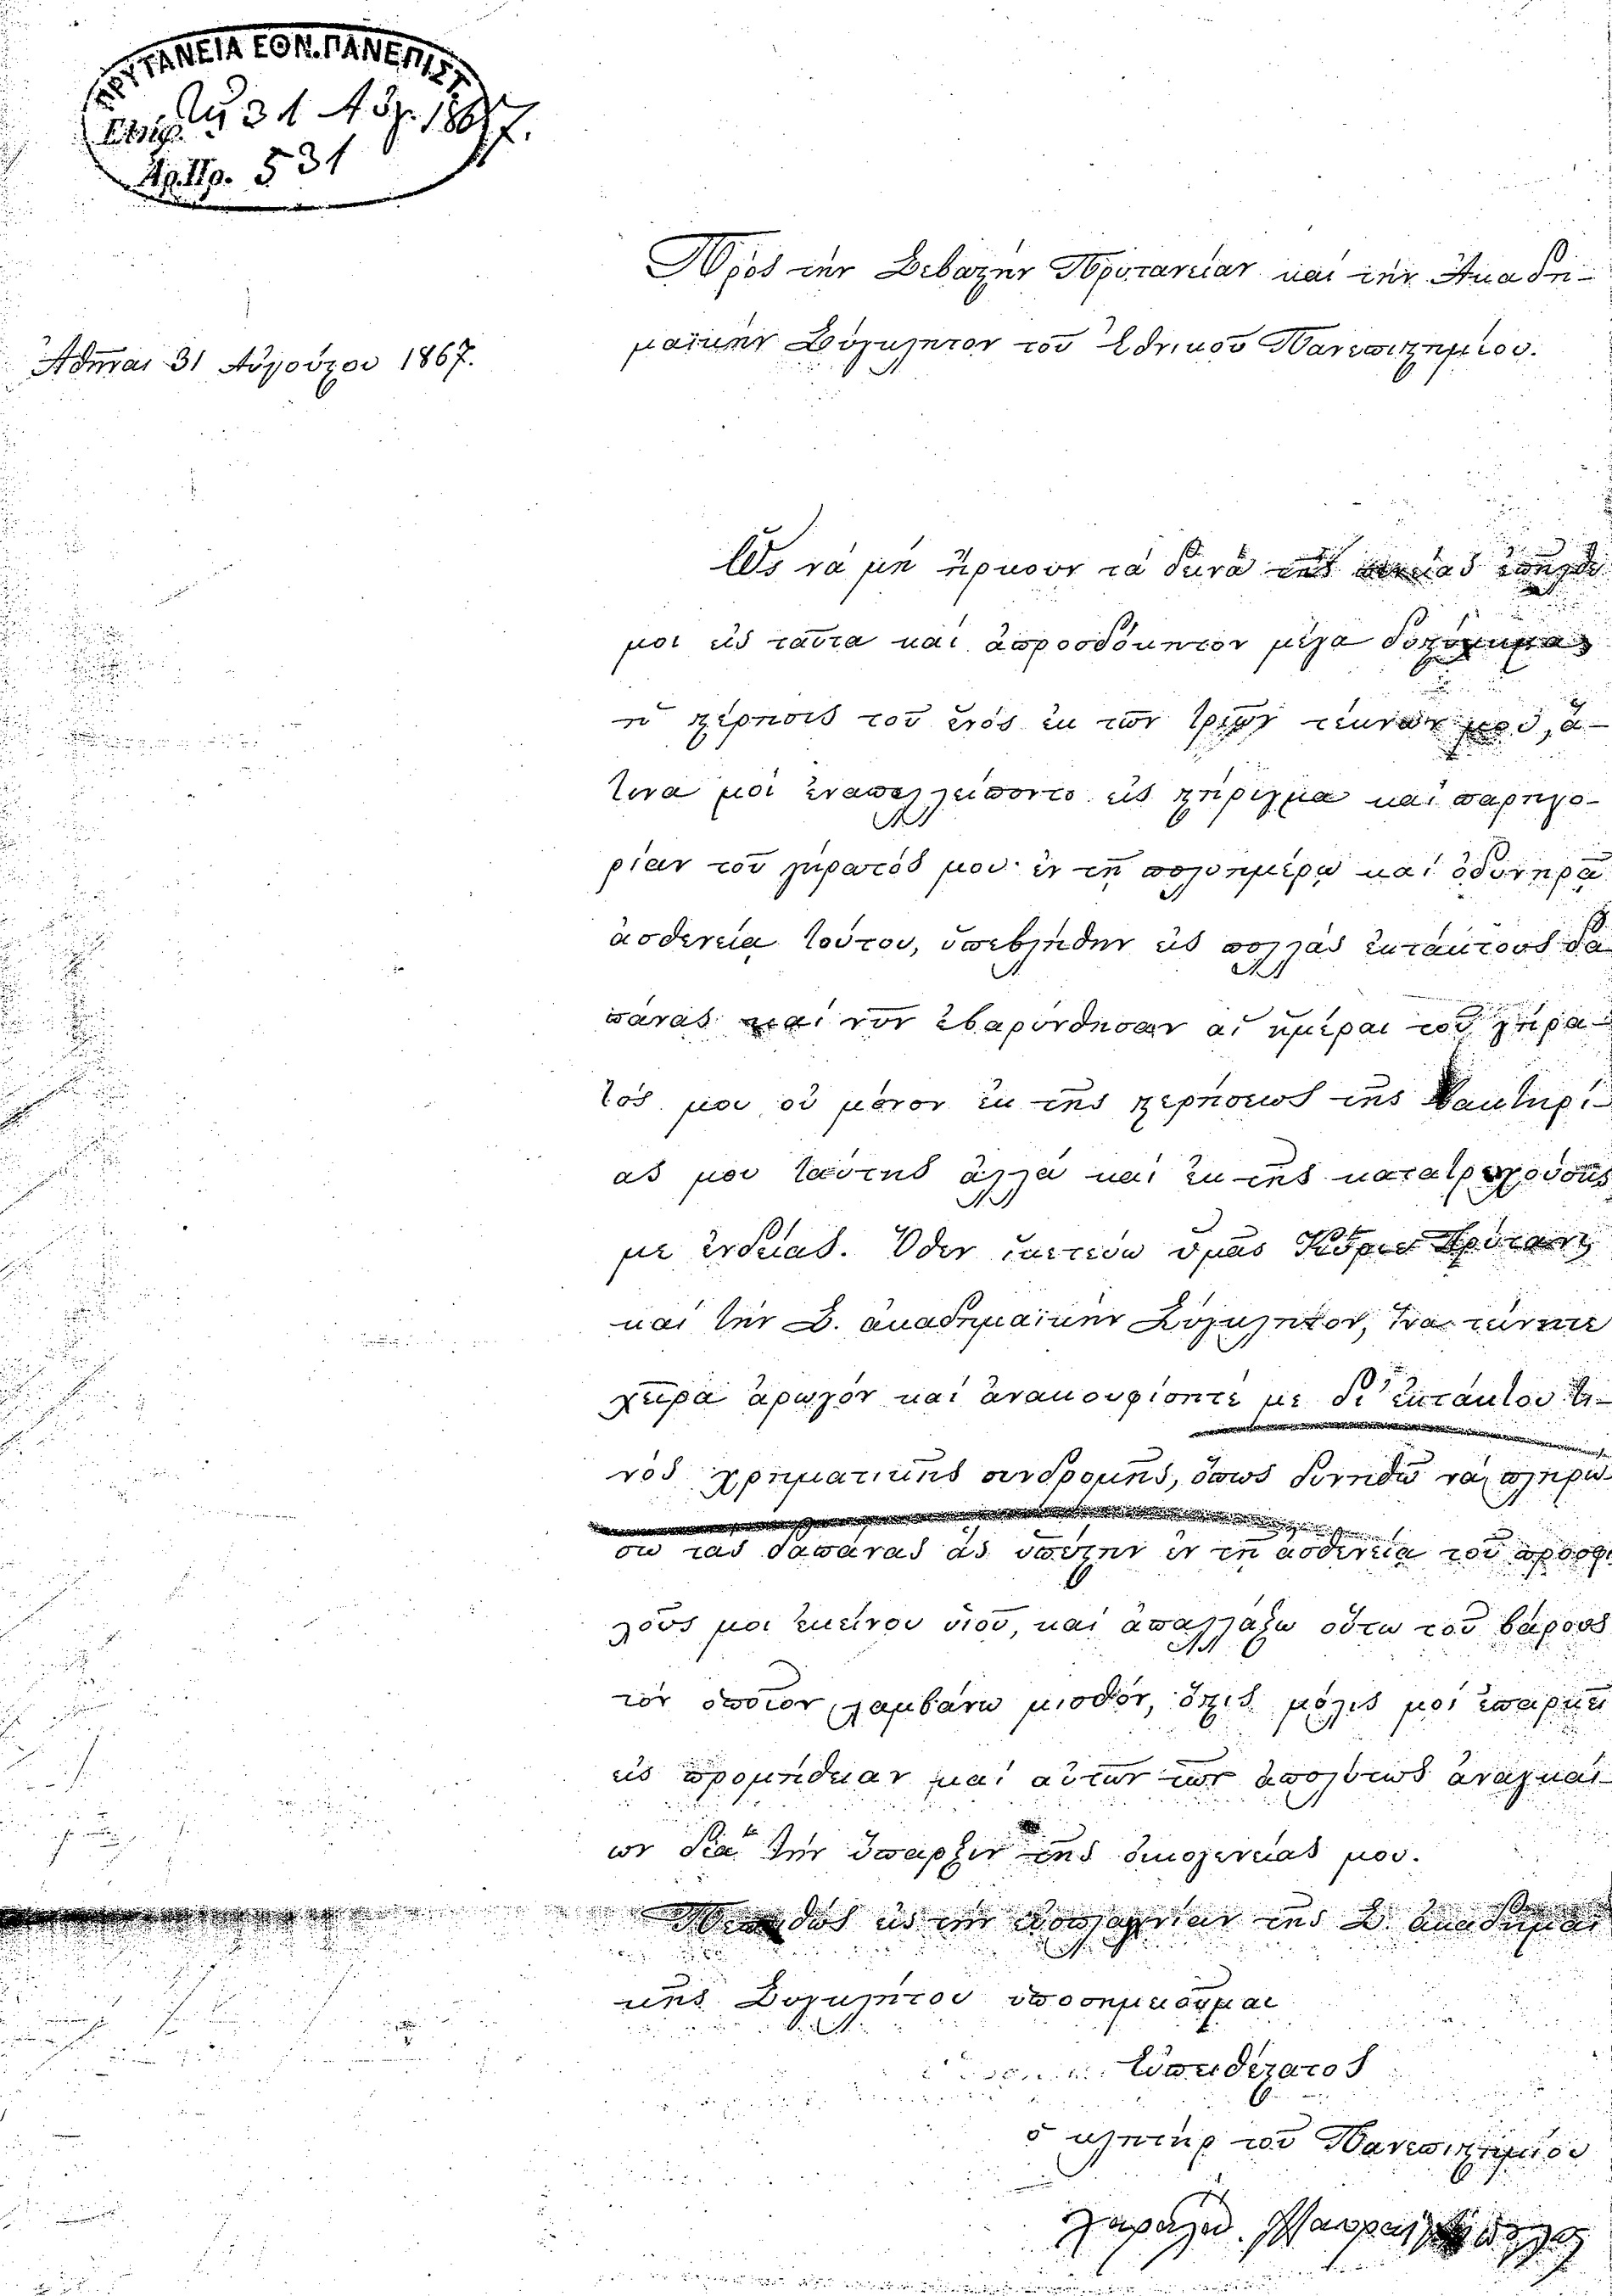 ΠΡΥΤΑΝΕΙΑ ΕΘΝ. ΠΑΝΕΠΙΣΤ.
τῇ 31 Αὐγ. 1867.
Ἀρ. Πρ. 531
Πρὸς τὴν Σεβαστὴν Πρυτανείαν καὶ τὴν Ἀκαδη-
μαϊκὴν Σύγκλητον τοῦ Ἐθνικοῦ Πανεπιστημίου.
Ἀθῆναι 31 Αὐγούστου 1867.
Ὡς νὰ μὴ ἤρκουν τὰ δεινὰ τῆς πενίας ἐπῆλθέ
μοι εἰς ταῦτα καὶ ἀπροσδόκητον μέγα δυστύχημα,
ἡ στέρησις τοῦ ἑνὸς ἐκ τῶν τριῶν τέκνων μου, ἅ-
τινα μοὶ ἐναπελλείποντο εἰς στήριγμα καὶ παρηγο-
ρίαν τοῦ γήρατός μου· ἐν τῇ πολυημέρῳ καὶ ὀδυνηρᾷ
ἀσθενείᾳ τούτου, ὑπεβλήθην εἰς πολλὰς ἐκτάκτους δα-
πάνας καὶ νῦν ἐβαρύνθησαν αἱ ἡμέραι τοῦ γήρα-
τός μου οὐ μόνον ἐκ τῆς στερήσεως τῆς βακτηρί-
ας μου ταύτης ἀλλὰ καὶ ἐκ τῆς κατατρυχούσης
με ἐνδείας. Ὅθεν ἱκετεύω ὑμᾶς Κύριε Πρύτανι
καὶ τὴν Σ. ἀκαδημαϊκὴν Σύγκλητον, ἵνα τείνητε
χεῖρα ἀρωγὸν καὶ ἀνακουφίσητέ με δι' ἐκτάκτου τι-
νὸς χρηματικῆς συνδρομῆς, ὅπως δυνηθῶ νὰ πληρώ-
σω τὰς δαπάνας ἃς ὑπέστην ἐν τῇ ἀσθενείᾳ τοῦ προσφι
λοῦς μοι ἐκείνου υἱοῦ, καὶ ἀπαλλάξω οὕτω τοῦ βάρους
τὸν ὁποῖον λαμβάνω μισθόν, ὅστις μόλις μοὶ ἐπαρκεῖ
εἰς προμήθειαν καὶ αὐτῶν τῶν ἀπολύτως ἀναγκαί-
ων διὰ τὴν ὕπαρξιν τῆς οἰκογενείας μου.
Πεποιθὼς εἰς τὴν εὐσπλαγχνίαν τῆς Σ. ἀκαδημαϊ
κῆς Συγκλήτου ὑποσημειοῦμαι
Εὐπειθέστατος
ὁ κλητὴρ τοῦ Πανεπιστημίου